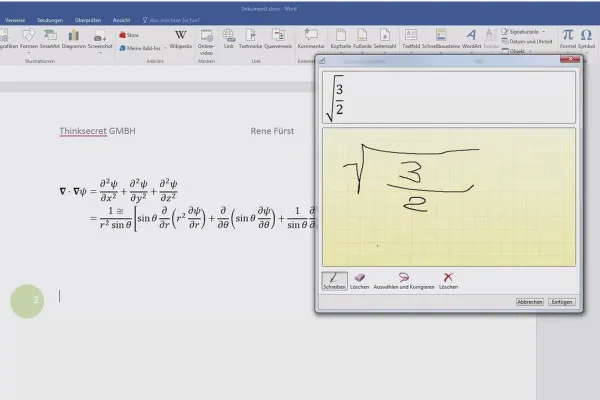 Dokument3.docx - Word
Verweise Sendungen Überprüfen Ansicht Was möchten Sie tun?
Formen SmartArt Diagramm Screenshot Store Meine Add-Ins Wikipedia Online-video Link Textmarke Querverweis Kommentar Kopfzeile Fußzeile Seitenzahl Textfeld Schnellbausteine WordArt Initiale Signaturzeile Datum und Uhrzeit Objekt Formel Symbol
Illustrationen Add-Ins Medien Link
√(3/2)
Thinksecret GMBH Rene Fürst
∇ · ∇ψ = ∂²ψ/∂x² + ∂²ψ/∂y² + ∂²ψ/∂z²
= 1 ≅/r² sin θ [sin θ ∂/∂r (r² ∂ψ/∂r) + ∂/∂θ (sin θ ∂ψ/∂θ) + 1/sin θ
√(3/2)
2
Schreiben Löschen Auswählen und Korrigieren Löschen
Abbrechen Einfügen